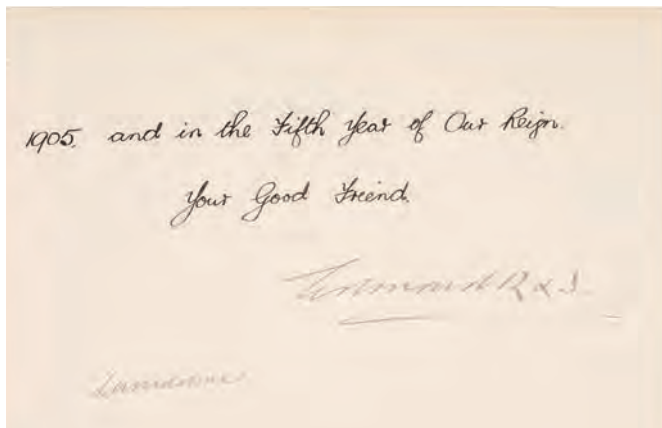 1905. and in the Fifth Year of Our Reign.
Your Good Friend.
Edward R & I.
Lansdowne